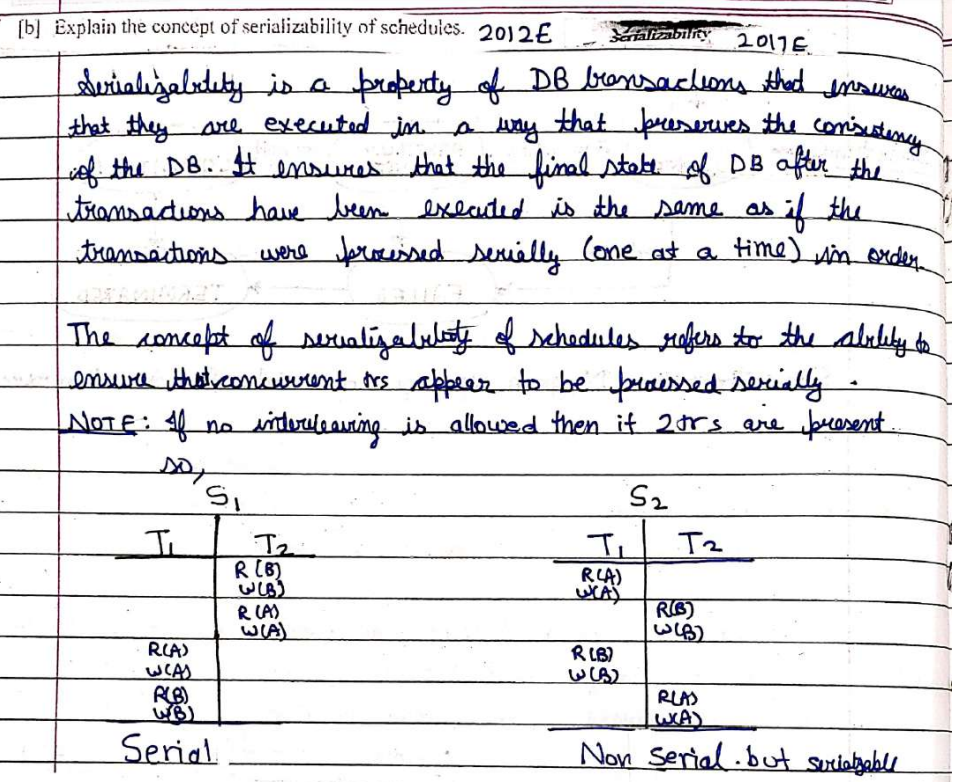 [b] Explain the concept of serializability of schedules. 2012E Serializability 2017E
Serializability is a property of DB transactions that ensures
that they are executed in a way that preserves the consistency
of the DB. It ensures that the final state of DB after the
transactions have been executed is the same as if the
transactions were processed serially (one at a time) in order.
The concept of serializability of schedules refers to the ability to
ensure that concurrent trs appear to be processed serially.
NOTE: If no interleaving is allowed then if 2 trs are present
so,
S1 S2
T1 T2 T1 T2
R(B) R(A)
W(B) W(A)
R(A) R(B)
W(A) W(B)
R(A) R(B)
W(A) W(B)
R(B) R(A)
W(B) W(A)
Serial Non Serial. but serializable